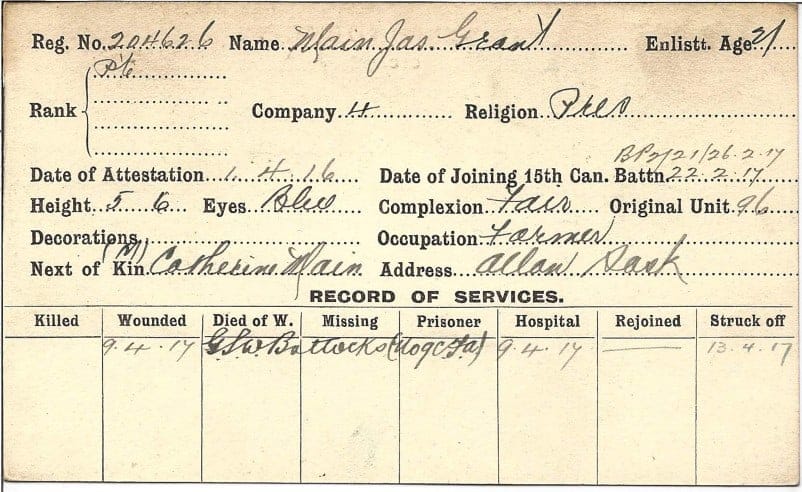 Reg. No. 204626 Name Main Jas Grant Enlistt. Age 21
Pte
Rank Company 4 Religion Pres
BP2/21/26.2.17
Date of Attestation 1.4.16 Date of Joining 15th Can. Battn. 22.2.17
Height 5 6 Eyes Blue Complexion Fair Original Unit 96
Decorations Occupation Farmer
(M)
Next of Kin Catherine Main Address Allan Sask
RECORD OF SERVICES.
Killed Wounded Died of W. Missing Prisoner Hospital Rejoined Struck off
9.4.17 G.S.W. Buttocks 9.4.17 13.4.17